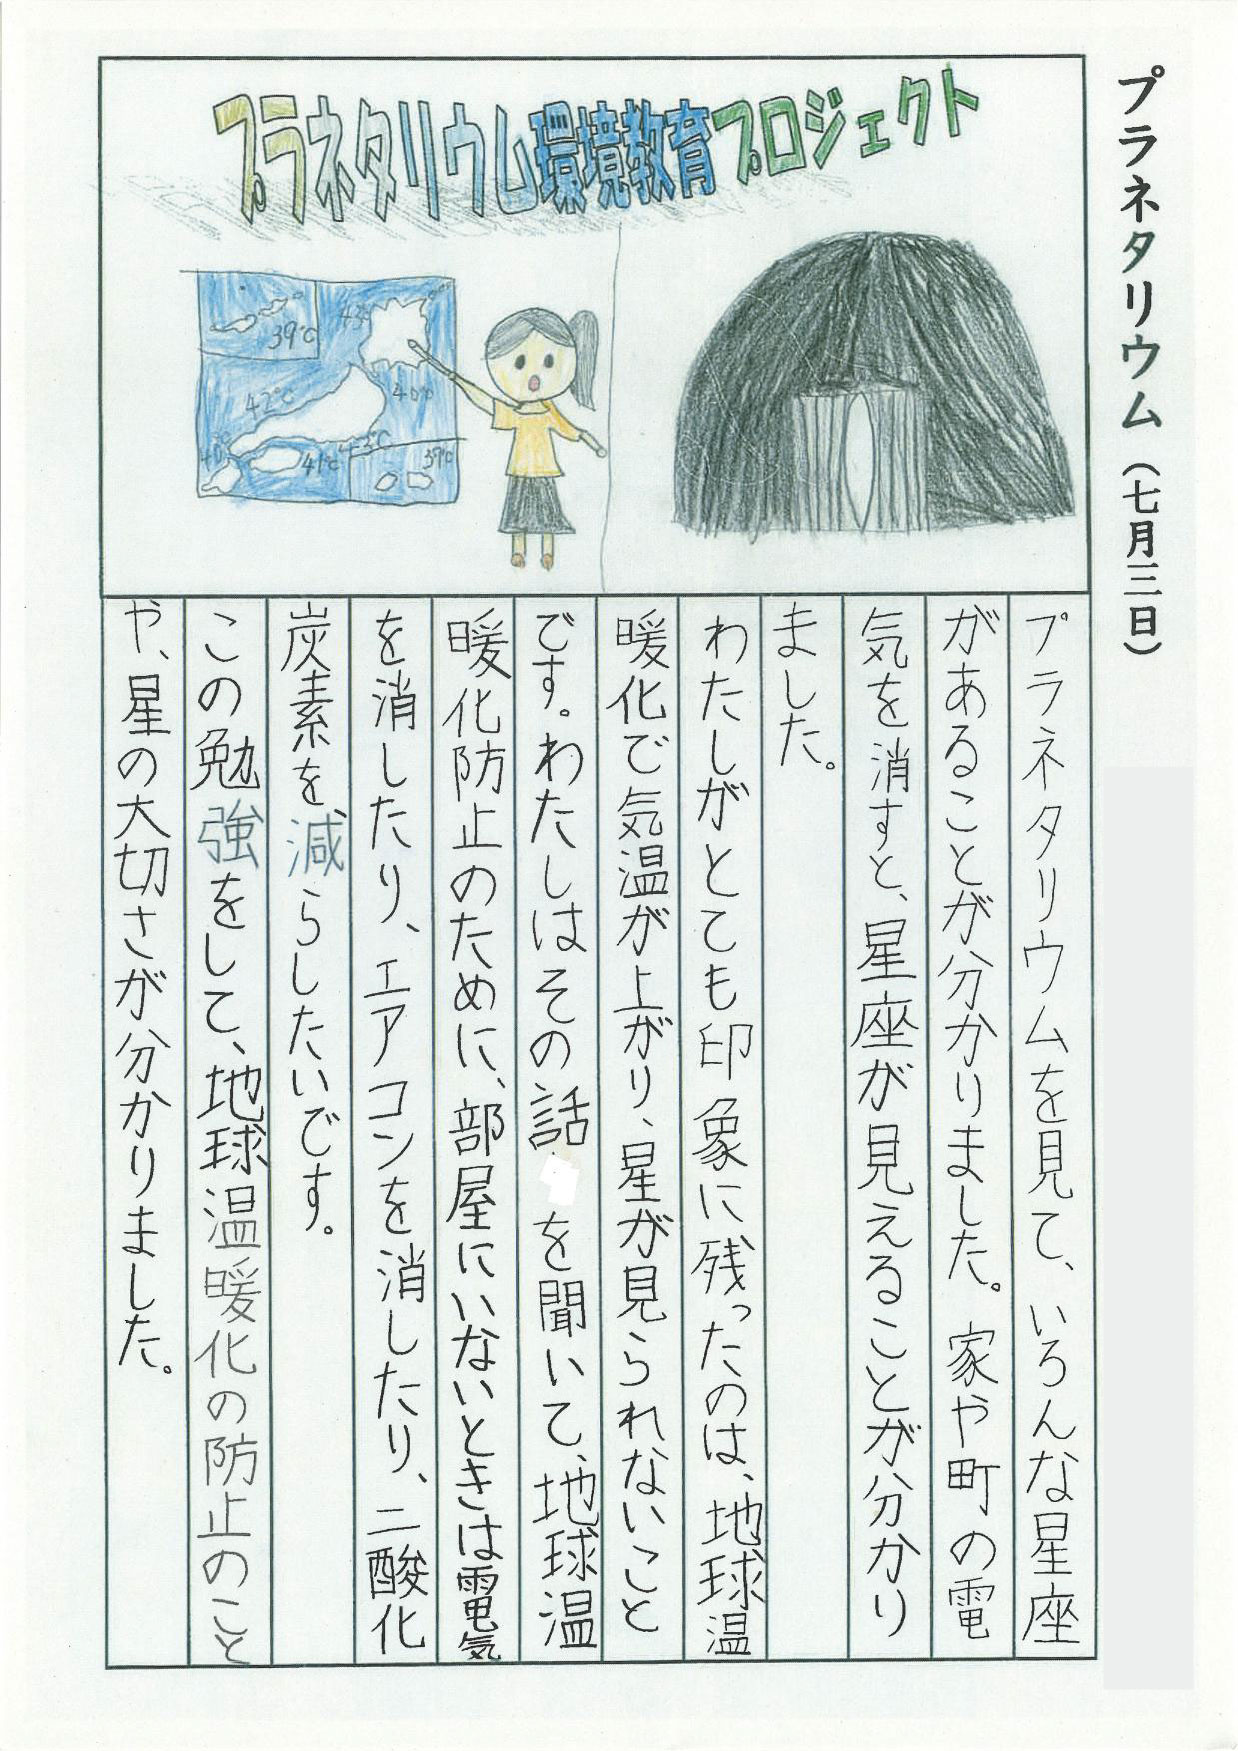 プラネタリウム（七月三日）
プラネタリウム環境教育プロジェクト
39℃
43℃
42℃
40℃
40℃
43℃
41℃
37℃
プラネタリウムを見て、いろんな星座
があることが分かりました。家や町の電
気を消すと、星座が見えることが分かり
ました。
わたしがとても印象に残ったのは、地球温
暖化で気温が上がり、星が見られないこと
です。わたしはその話を聞いて、地球温
暖化防止のために、部屋にいないときは電気
を消したり、エアコンを消したり、二酸化
炭素を減らしたいです。
この勉強をして、地球温暖化の防止のこと
や、星の大切さが分かりました。